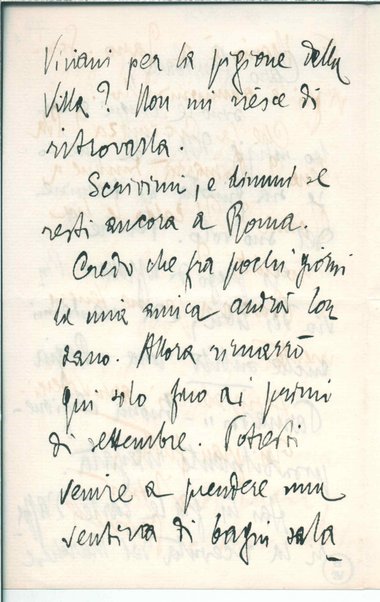 Viviani per la pigione della
Villa? Non mi riesce di
ritrovarla.
Scrivimi, e dimmi se
resti ancora a Roma.
Credo che fra pochi giorni
la mia amica andrà lon
tano. Allora rimarrò
qui solo fino ai primi
di settembre. Potresti
venire a prendere una
ventina di bagni sala